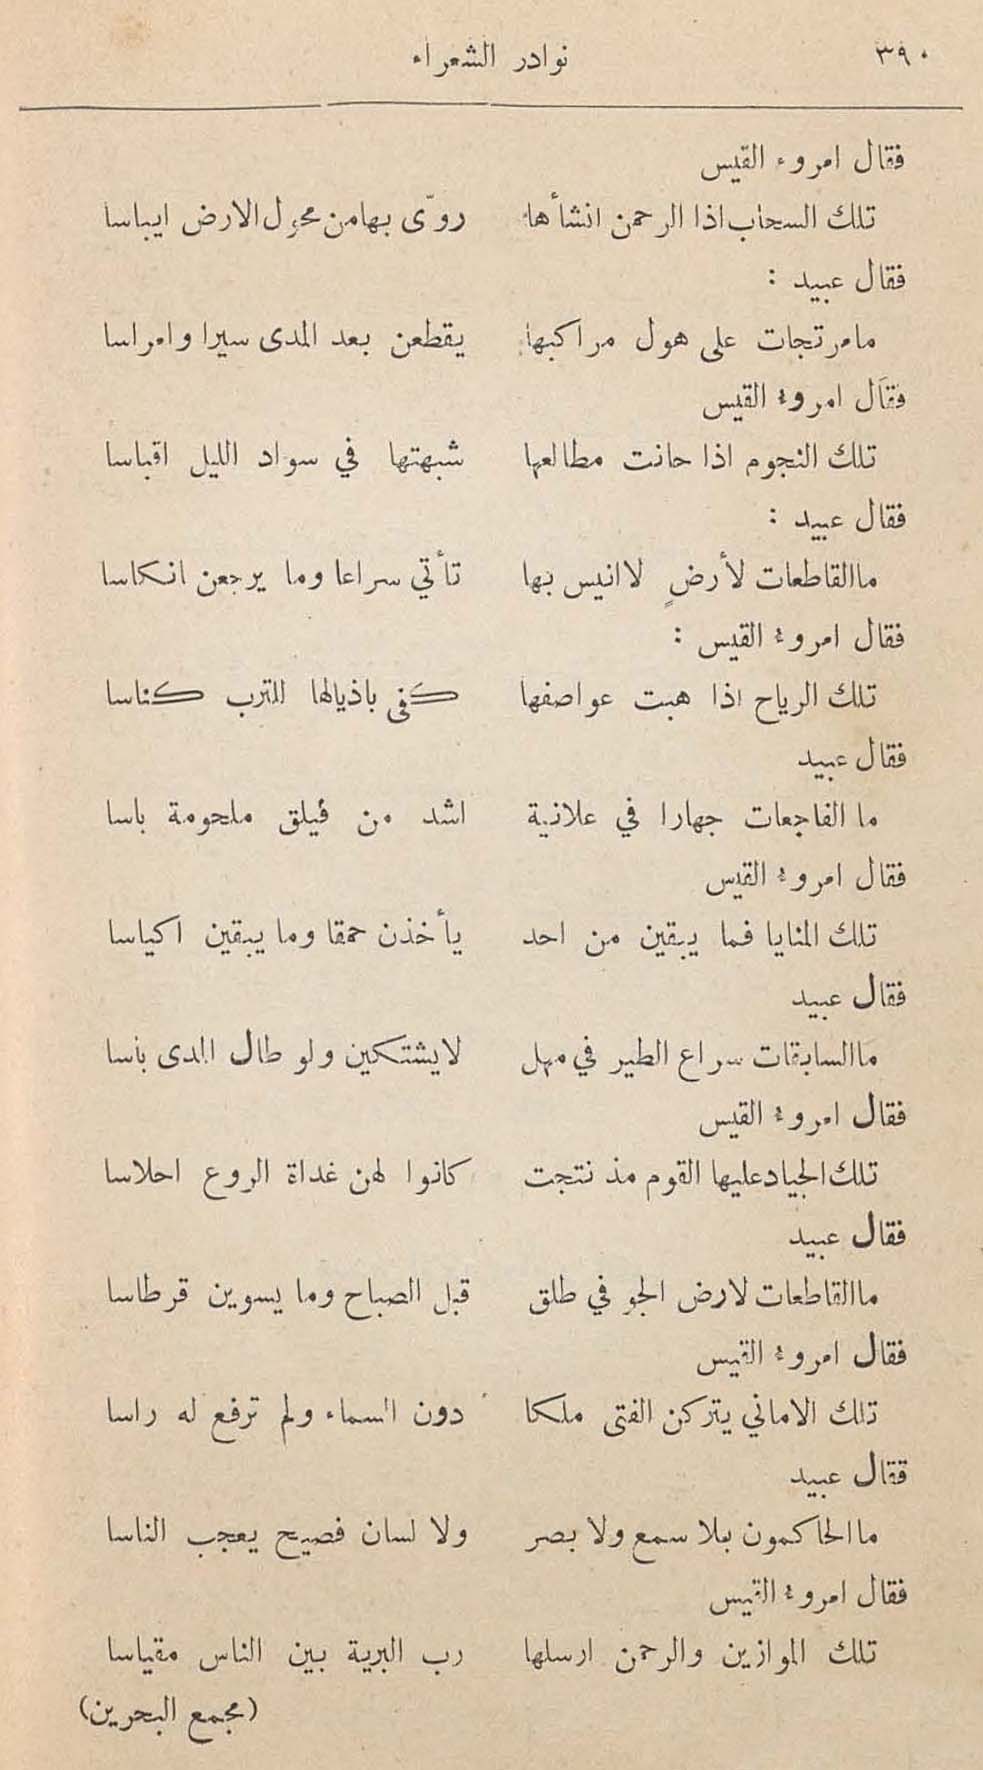 ٣٩٠ نوادر الشعراء
فقال امروء القيس
تلك السحاب اذا الرحمن انشأها روّى بها من محول الارض ايباسا
فقال عبيد :
ما مرتجات على هول مراكبها يقطعن بعد المدى سيرا وامراسا
فقال امروء القيس
تلك النجوم اذا حانت مطالعها شبهتها في سواد الليل اقباسا
فقال عبيد :
ما القاطعات لأرضٍ لا انيس بها تأتي سراعا وما يرجعن انكاسا
فقال امروء القيس :
تلك الرياح اذا هبت عواصفها كفى باذيالها للترب كناسا
فقال عبيد
ما الفاجعات جهارا في علانية اشد من فيلق ملحومة باسا
فقال امروء القيس
تلك المنايا فما يبقين من احد يأخذن حمقا وما يبقين اكياسا
فقال عبيد
ما السابقات سراع الطير في مهل لا يشتكين ولو طال المدى باسا
فقال امروء القيس
تلك الجياد عليها القوم مذ نتجت كانوا لهن غداة الروع احلاسا
فقال عبيد
ما القاطعات لارض الجو في طلق قبل الصباح وما يسوين قرطاسا
فقال امروء القيس
تلك الاماني يتركن الفتى ملكا دون السماء ولم ترفع له راسا
فقال عبيد
ما الحاكمون بلا سمع ولا بصر ولا لسان فصيح يعجب الناسا
فقال امروء القيس
تلك الموازين والرحمن ارسلها رب البرية بين الناس مقياسا
(مجمع البحرين)